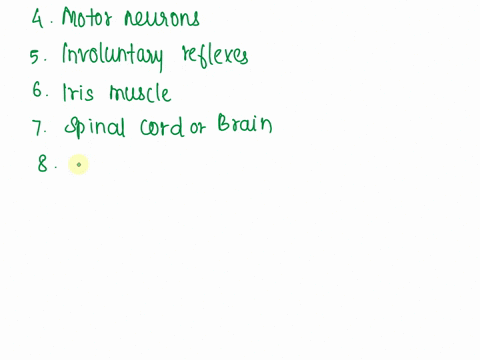 4. Motor neurons
5. Involuntary reflexes
6. Iris muscle
7. Spinal cord or Brain
8.